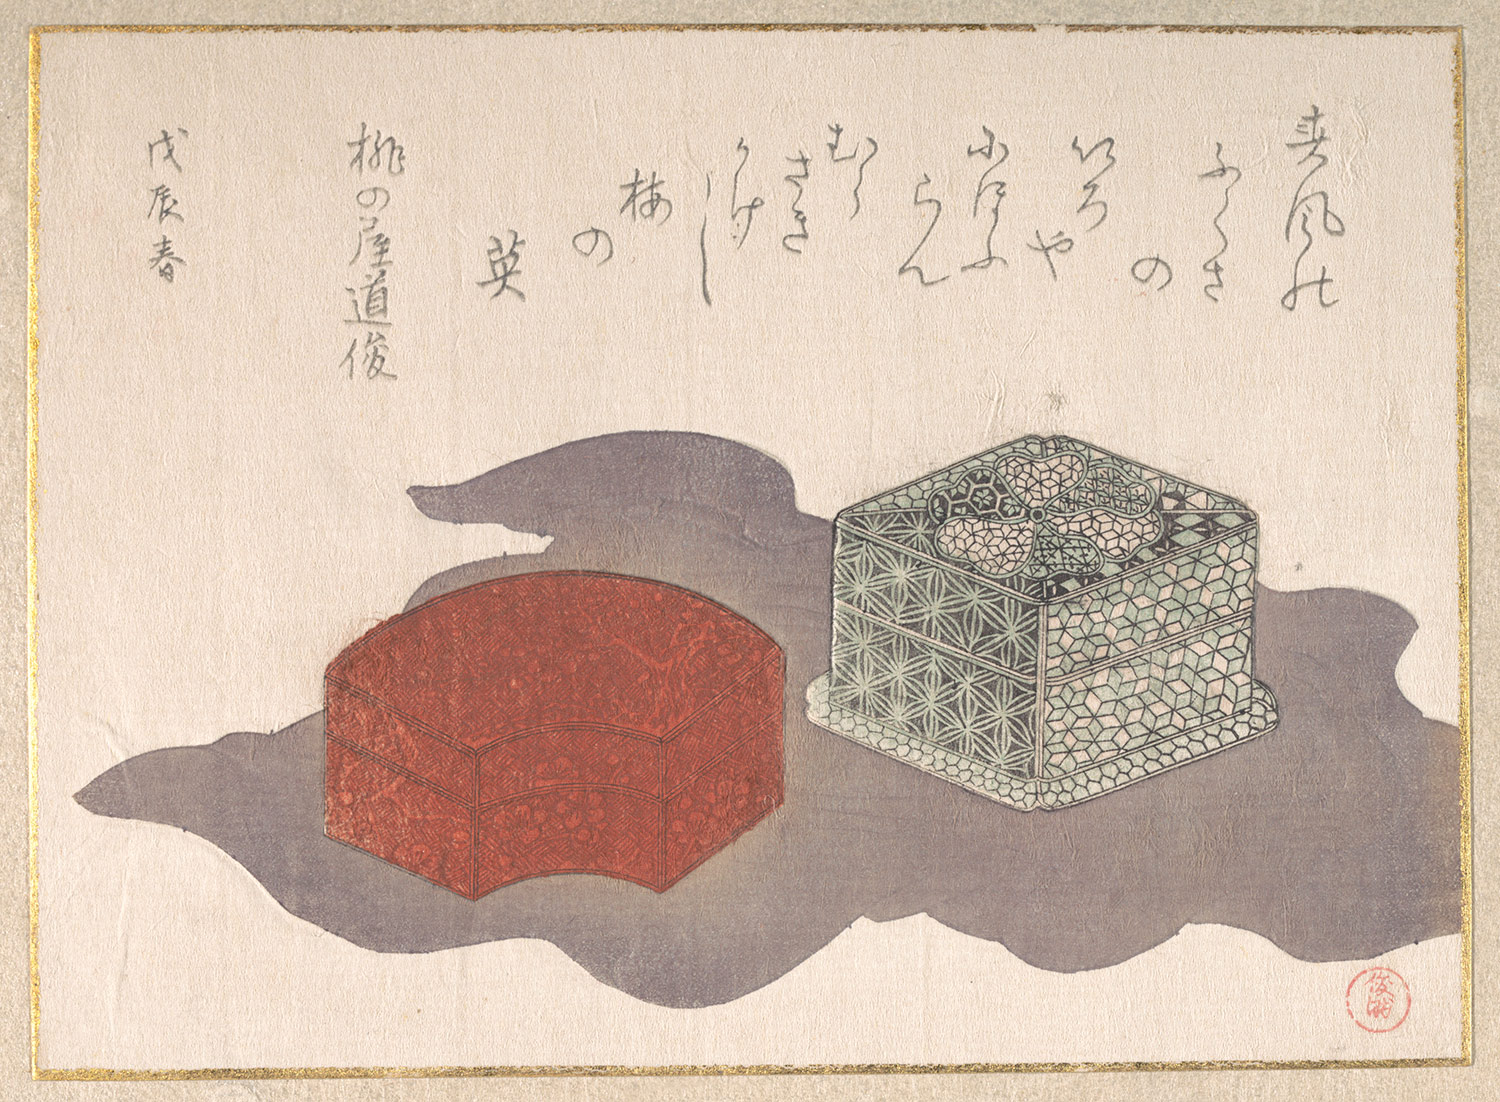 春風の
ふくさ
の
いろ
や
にほふ
らん
むら
さき
かけ
し
梅
の
英
桃の屋道俊
戊辰春
俊満